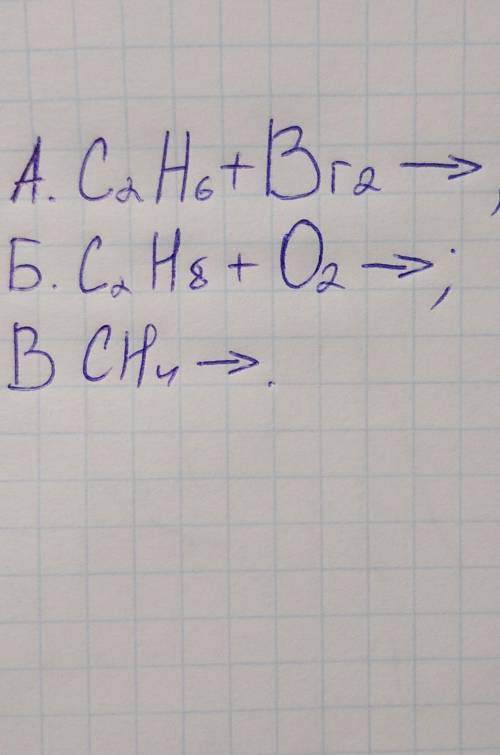 А. C₂H₆ + Br₂ → ;
Б. C₂H₈ + O₂ → ;
В CH₄ → .